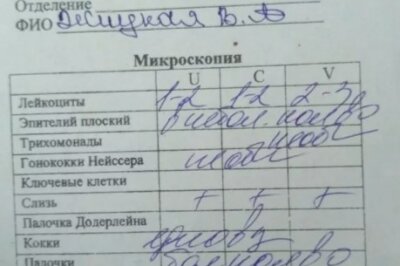 Отделение
ФИО Жицкая В. А
Микроскопия
U C V
Лейкоциты 1-2 1-2 2-3
Эпителий плоский в небол. кол-во
Трихомоналы необ
Гонококки Нейссера необ
Ключевые клетки
Слизь + + +
Палочка Додерлейна
Кокки
Палочки